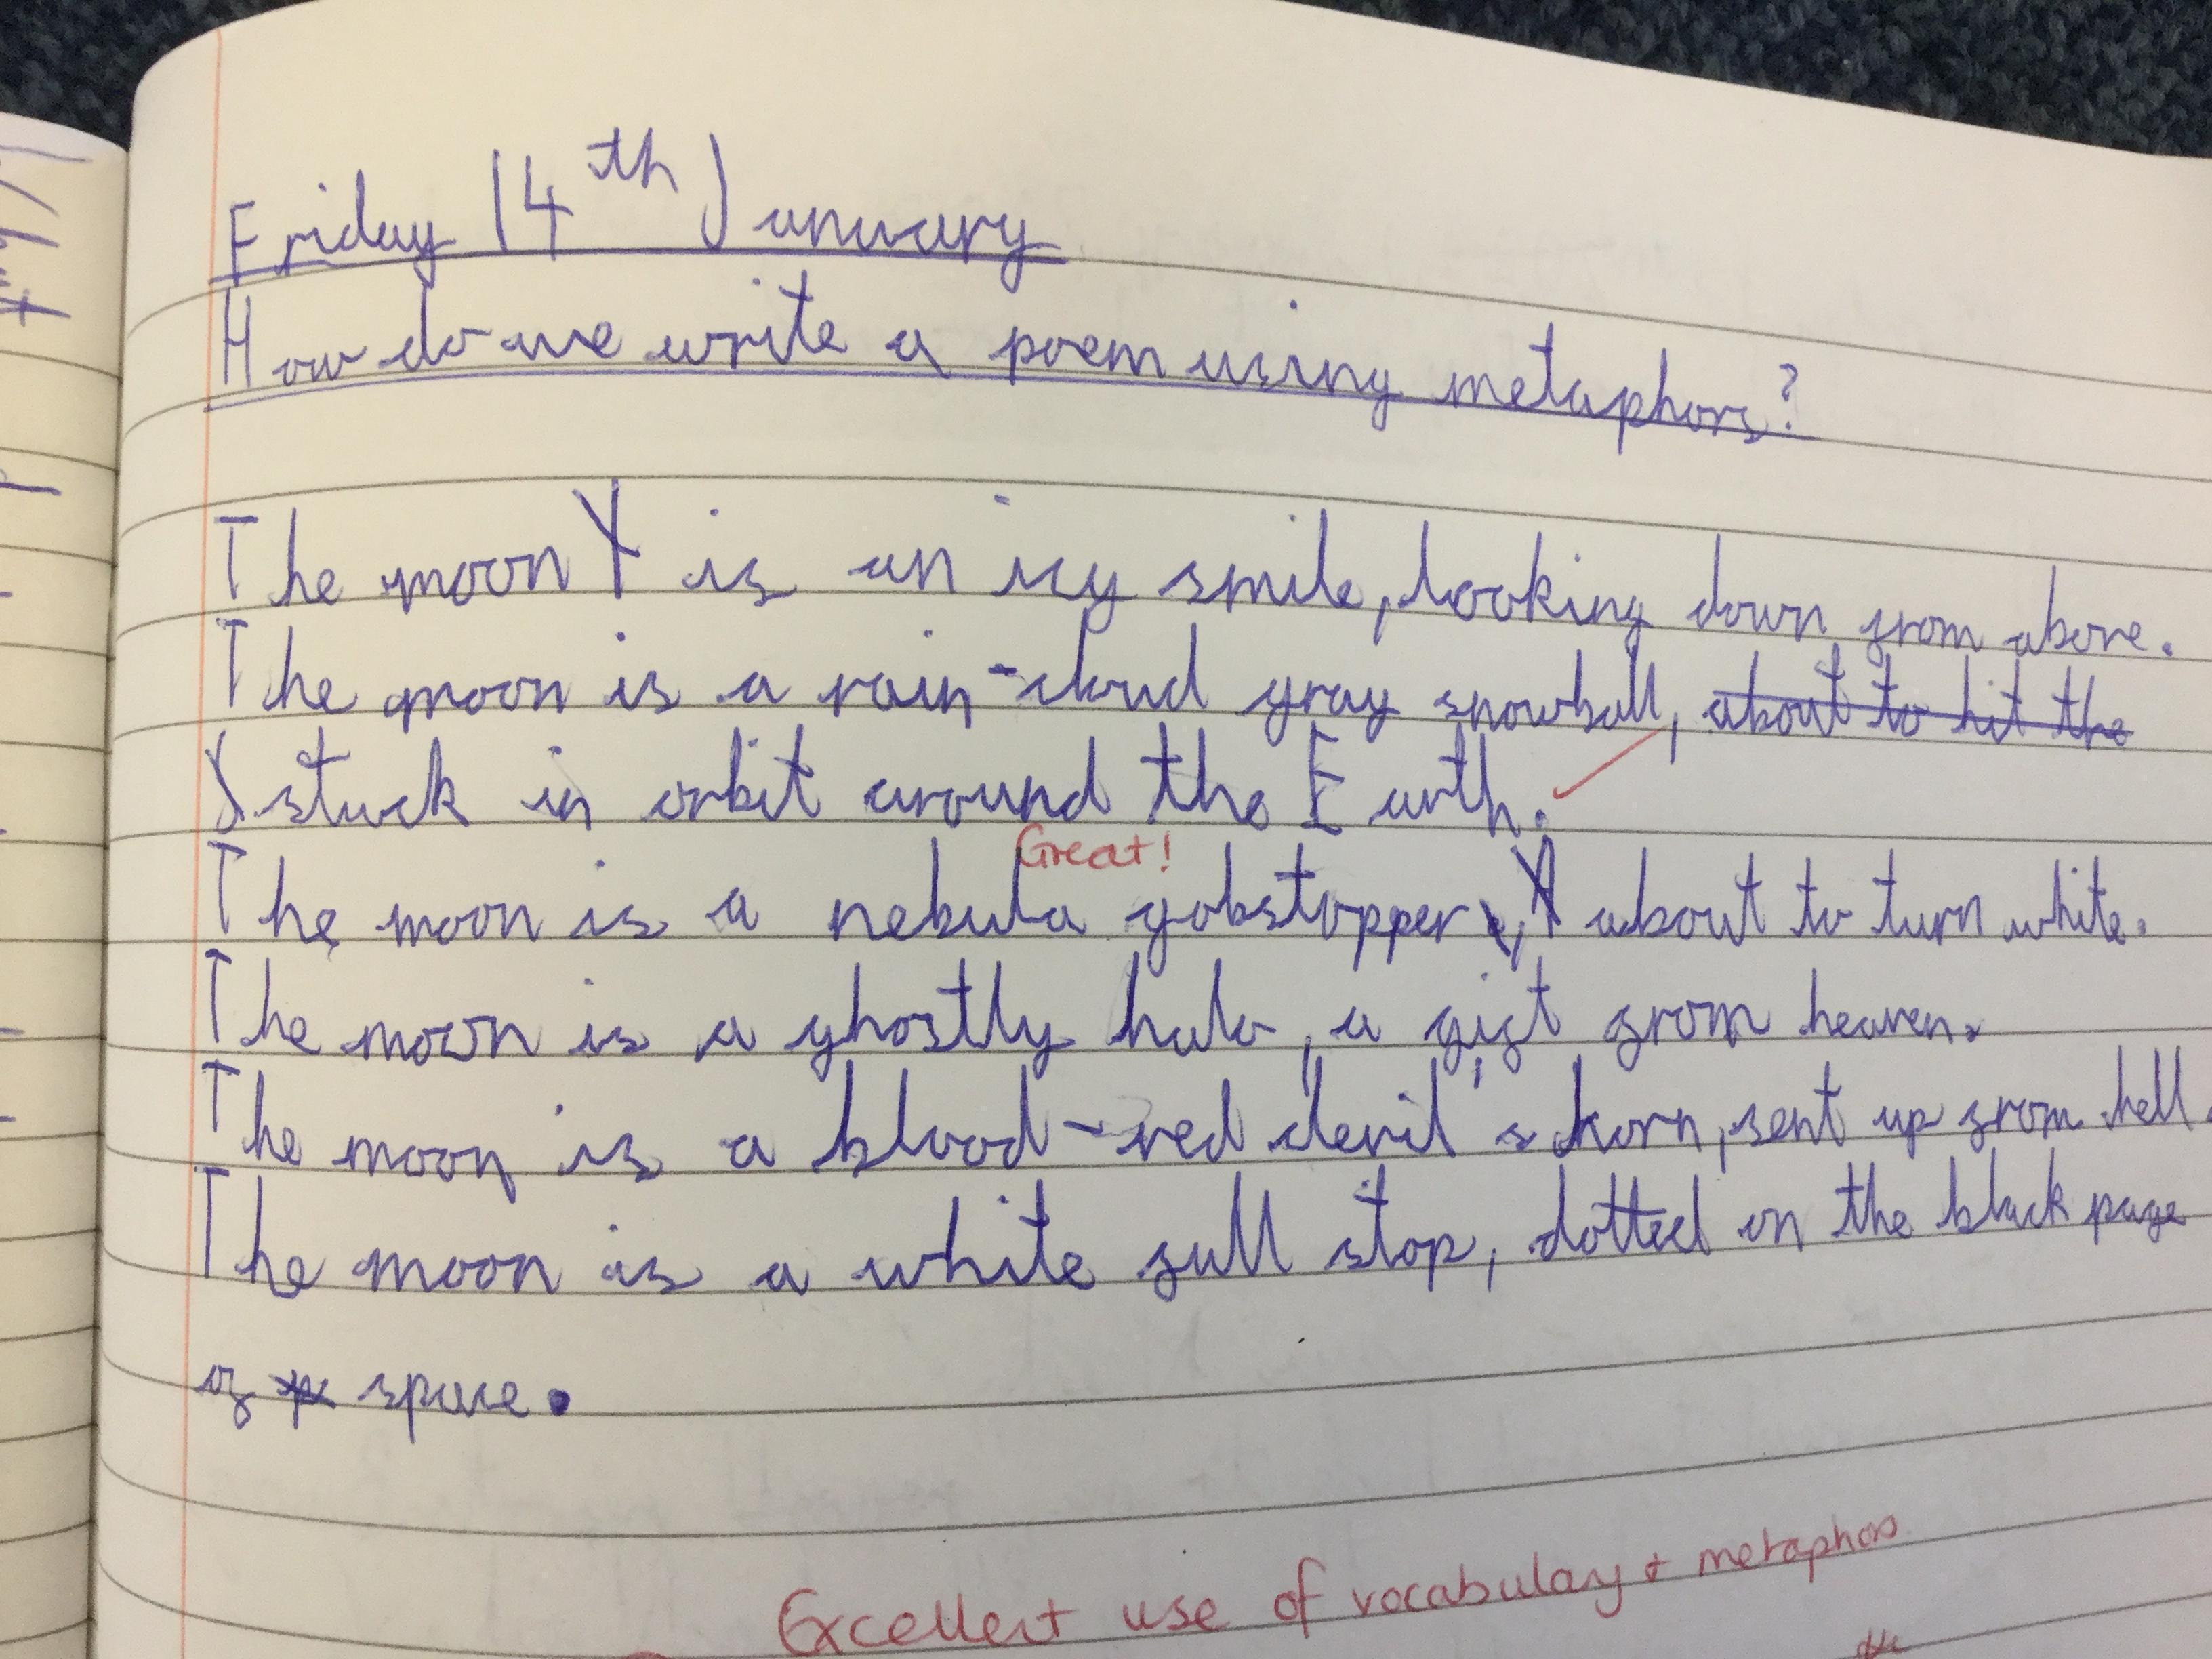 Friday 14th January
How do we write a poem using metaphors?
The moon is an icy smile, looking down from above.
The moon is a rain-cloud gray snowball, about to hit the
stuck in orbit around the Earth.
Great!
The moon is a nebula gobstopper, about to turn white.
The moon is a ghostly halo, a gift from heaven.
The moon is a blood-red devil's horn, sent up from hell.
The moon is a white full stop, dotted on the black page
of space.
Excellent use of vocabulary + metaphors